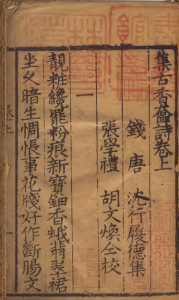 集古香奩詩卷上
錢唐 沈行履德集
張學禮 胡文煥仝校
一
靚粧纔罷粉痕新寶鈿香蛾翡翠裙
坐久暗生惆悵事花牋好作斷腸文